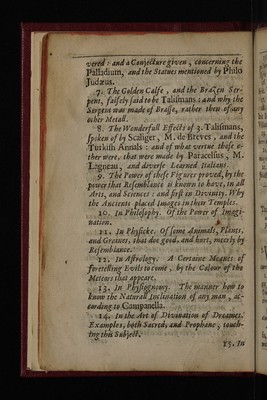 vered: and a Conjecture given, concerning the
Palladium, and the Statues mentioned by Philo
Judæus.
7. The Golden Calfe, and the Brazen Ser-
pent, falsely said to be Talismans: and why the
Serpent was made of Brasse, rather then of any
other Metall.
8. The Wonderfull Effects of 3. Talismans,
spoken of by Scaliger, M. de Breves, and the
Turkish Annals: and of what vertue those o-
ther were, that were made by Paracelsus, M.
Lagneau, and diverse Learned Italians.
9. The Power of these Figures proved, by the
power that Resemblance is known to have, in all
Arts, and Sciences: and first in Divinity. Why
the Ancients placed Images in their Temples.
10. In Philosophy. Of the Power of Imagi-
nation.
11. In Physicke. Of some Animals, Plants,
and Graines, that doe good, and hurt, meerly by
Resemblance.
12. In Astrology. A Certaine Meanes of
foretelling Evils to come, by the Colour of the
Meteors that appeare.
13. In Physiognomy. The manner how to
know the Naturall Inclination of any man, ac-
cording to Campanella.
14. In the Art of Divination of Dreames.
Examples, both Sacred, and Prophane, touch-
ing this Subject.
15. In